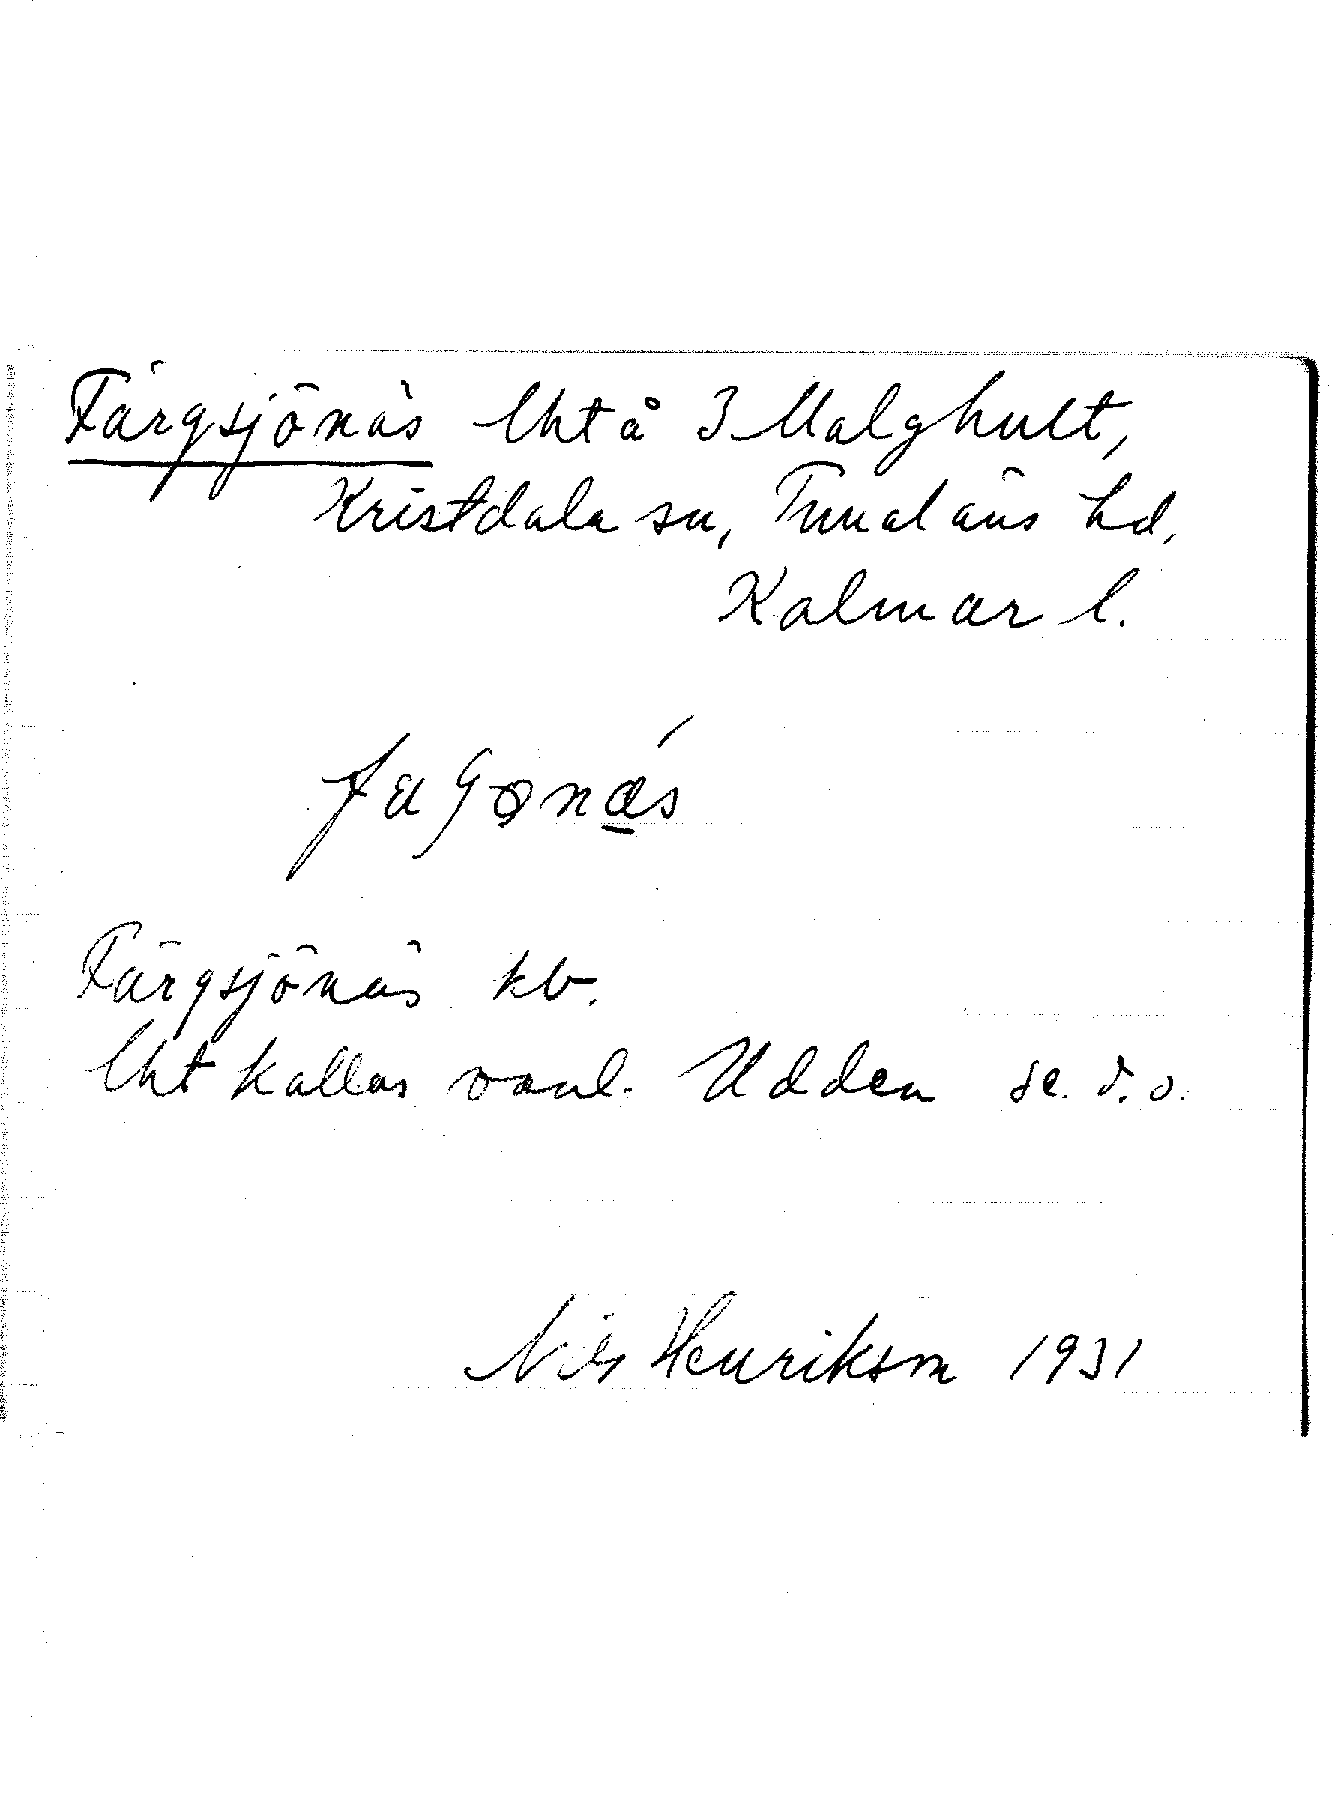 Färgsjönäs lht å 3 Malghult,
Kristdala sn, Tunaläns hd,
Kalmar l.
Färgsjönäs kb.
lht kallas vanl. Udden se. d. o.
Nils Henrikson 1931